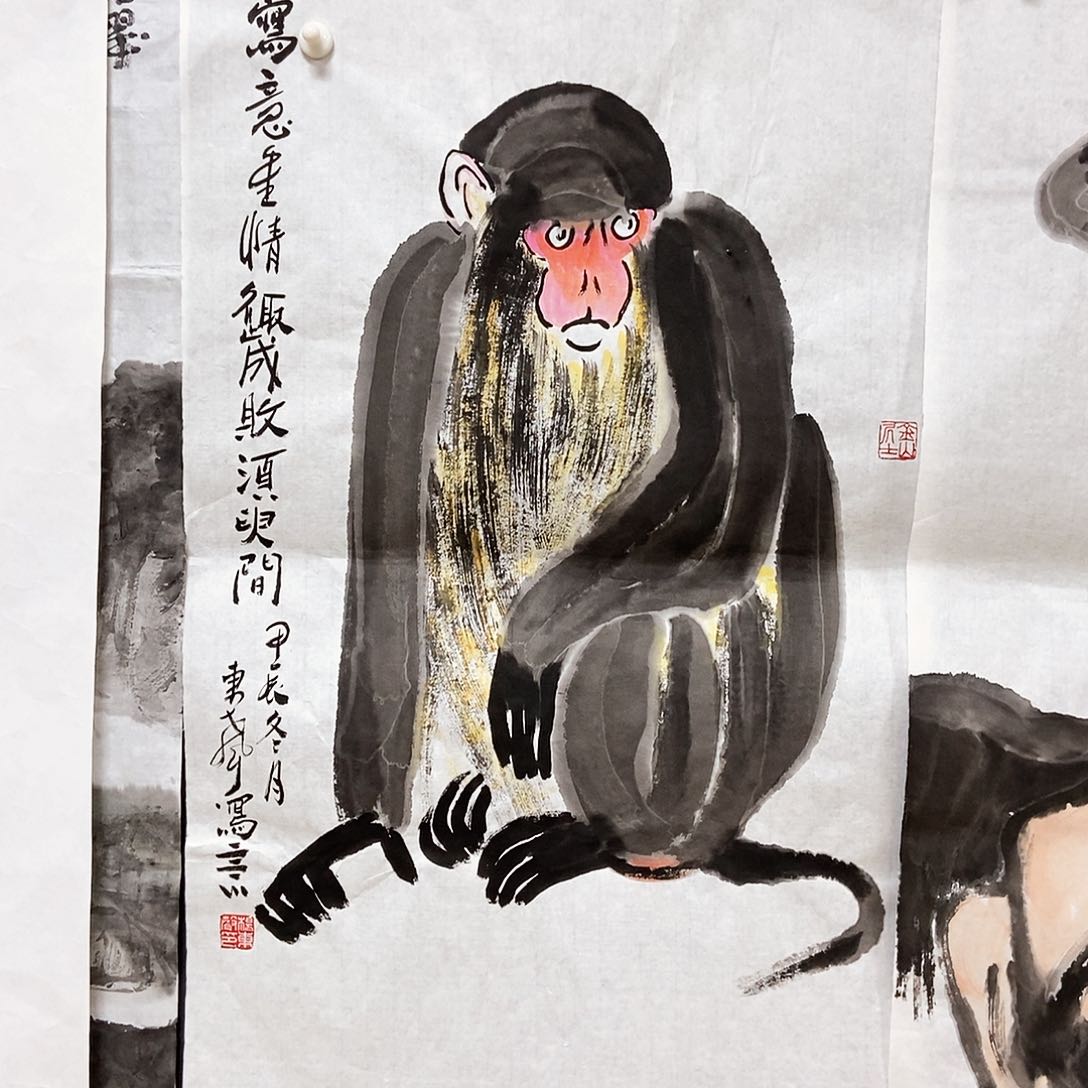 寫意重情趣成敗須臾間
甲辰冬月
東
寫意